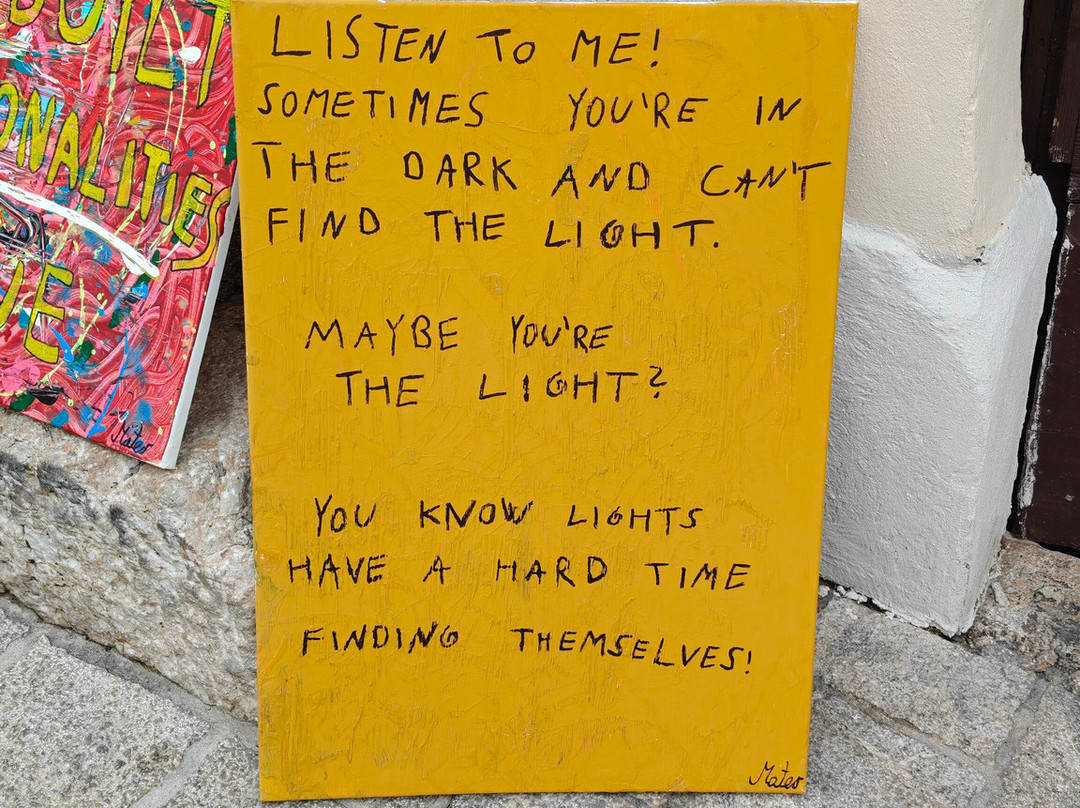 LISTEN TO ME!
SOMETIMES YOU'RE IN
THE DARK AND CAN'T
FIND THE LIGHT.
MAYBE YOU'RE
THE LIGHT?
YOU KNOW LIGHTS
HAVE A HARD TIME
FINDING THEMSELVES!
Mateo
ONALITIES
Mateo